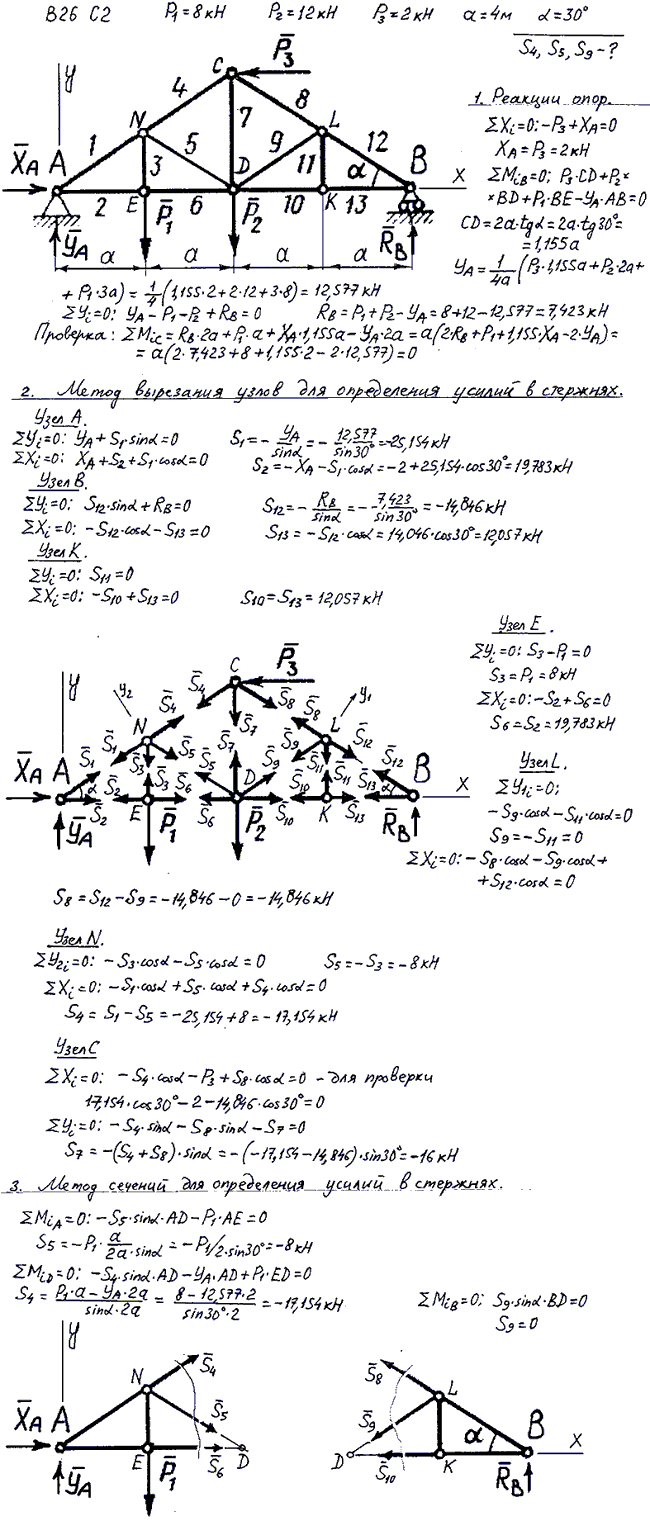 В26 С2 P₁=8кН P₂=12кН P₃=2кН a=4м α=30°
S₄, S₅, S₉ - ?
y
C
P̄₃
4
8
N
L
1
5
7
9
12
A
X̄A
3
D
11
α
B
X
2
E
P̄₁
6
P̄₂
10
K
13
ȲA
R̄B
a a a a
1. Реакции опор.
ΣXi=0; -P₃+XA=0
XA=P₃=2кН
ΣMiB=0; P₃·CD+P₂×
×BD+P₁·BE-YA·AB=0
CD=2a·tgα=2a·tg30°=
=1,155a
YA=1/4a(P₃·1,155a+P₂·2a+
+P₁·3a)=1/4(1,155·2+2·12+3·8)=12,577кН
ΣYi=0; YA-P₁-P₂+RB=0 RB=P₁+P₂-YA=8+12-12,577=7,423кН
Проверка: ΣMiC=RB·2a+P₁·a+XA·1,155a-YA·2a=a(2·RB+P₁+1,155·XA-2·YA)=
=a(2·7,423+8+1,155·2-2·12,577)=0
2. Метод вырезания узлов для определения усилий в стержнях.
Узел A.
ΣYi=0; YA+S₁·sinα=0 S₁=-YA/sinα=-12,577/sin30°=-25,154кН
ΣXi=0; XA+S₂+S₁·cosα=0 S₂=-XA-S₁·cosα=-2+25,154·cos30°=19,783кН
Узел B.
ΣYi=0; S₁₂·sinα+RB=0 S₁₂=-RB/sinα=-7,423/sin30°=-14,846кН
ΣXi=0; -S₁₂·cosα-S₁₃=0 S₁₃=-S₁₂·cosα=14,046·cos30°=12,057кН
Узел K.
ΣYi=0; S₁₁=0
ΣXi=0; -S₁₀+S₁₃=0 S₁₀=S₁₃=12,057кН
Узел E.
ΣYi=0; S₃-P₁=0
S₃=P₁=8кН
ΣXi=0; -S₂+S₆=0
S₆=S₂=19,783кН
y
C
P̄₃
y₂
S̄₄
S̄₄
S̄₇
S̄₈
S̄₈
y₁
N
L
S̄₁
S̄₁
S̄₃
S̄₅
S̄₅
S̄₇
S̄₉
S̄₉
S̄₁₁
S̄₁₂
S̄₁₂
X̄A
A
α
S̄₂
S̄₃
S̄₆
D
S̄₁₀
S̄₁₁
S̄₁₃
α
B
X
ȲA
S̄₂
E
P̄₁
S̄₆
P̄₂
S̄₁₀
K
S̄₁₃
R̄B
Узел L.
ΣY₁i=0;
-S₉·cosα-S₁₁·cosα=0
S₉=-S₁₁=0
ΣXi=0; -S₈·cosα-S₉·cosα+
+S₁₂·cosα=0
S₈=S₁₂-S₉=-14,846-0=-14,846кН
Узел N.
ΣY₂i=0; -S₃·cosα-S₅·cosα=0 S₅=-S₃=-8кН
ΣXi=0; -S₁·cosα+S₅·cosα+S₄·cosα=0
S₄=S₁-S₅=-25,154+8=-17,154кН
Узел C
ΣXi=0; -S₄·cosα-P₃+S₈·cosα=0 - для проверки
17,154·cos30°-2-14,846·cos30°=0
ΣYi=0; -S₄·sinα-S₈·sinα-S₇=0
S₇=-(S₄+S₈)·sinα=-(-17,154-14,846)·sin30°=-16кН
3. Метод сечений для определения усилий в стержнях.
ΣMiA=0; -S₅·sinα·AD-P₁·AE=0
S₅=-P₁·a/2a·sinα=-P₁/2·sin30°=-8кН
ΣMiD=0; -S₄·sinα·AD-YA·AD+P₁·ED=0
S₄=P₁·a-YA·2a/sinα·2a=8-12,577·2/sin30°·2=-17,154кН
ΣMiB=0; S₉·sinα·BD=0
S₉=0
y
N
S̄₄
S̄₅
X̄A
A
E
S̄₆
D
ȲA
P̄₁
S̄₈
L
S̄₉
B
α
X
D
S̄₁₀
K
R̄B